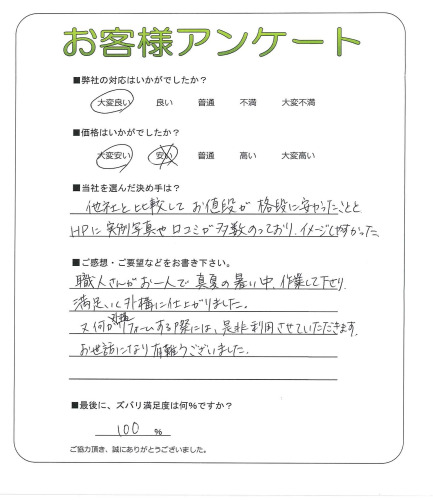 お客様アンケート
■弊社の対応はいかがでしたか？
大変良い 良い 普通 不満 大変不満
■価格はいかがでしたか？
大変安い 安い 普通 高い 大変高い
■当社を選んだ決め手は？
他社と比較してお値段が格段に安かったことと
HPに実例写真や口コミが多数のっており、イメージし易かった
■ご感想・ご要望などをお書き下さい。
職人さんがお一人で真夏の暑い中、作業して下さり
満足いく外構に仕上がりました。
又何かリフォームする際には、是非利用させていただきます。
お世話になり有難うございました。
■最後に、ズバリ満足度は何%ですか？
100 %
ご協力頂き、誠にありがとうございました。